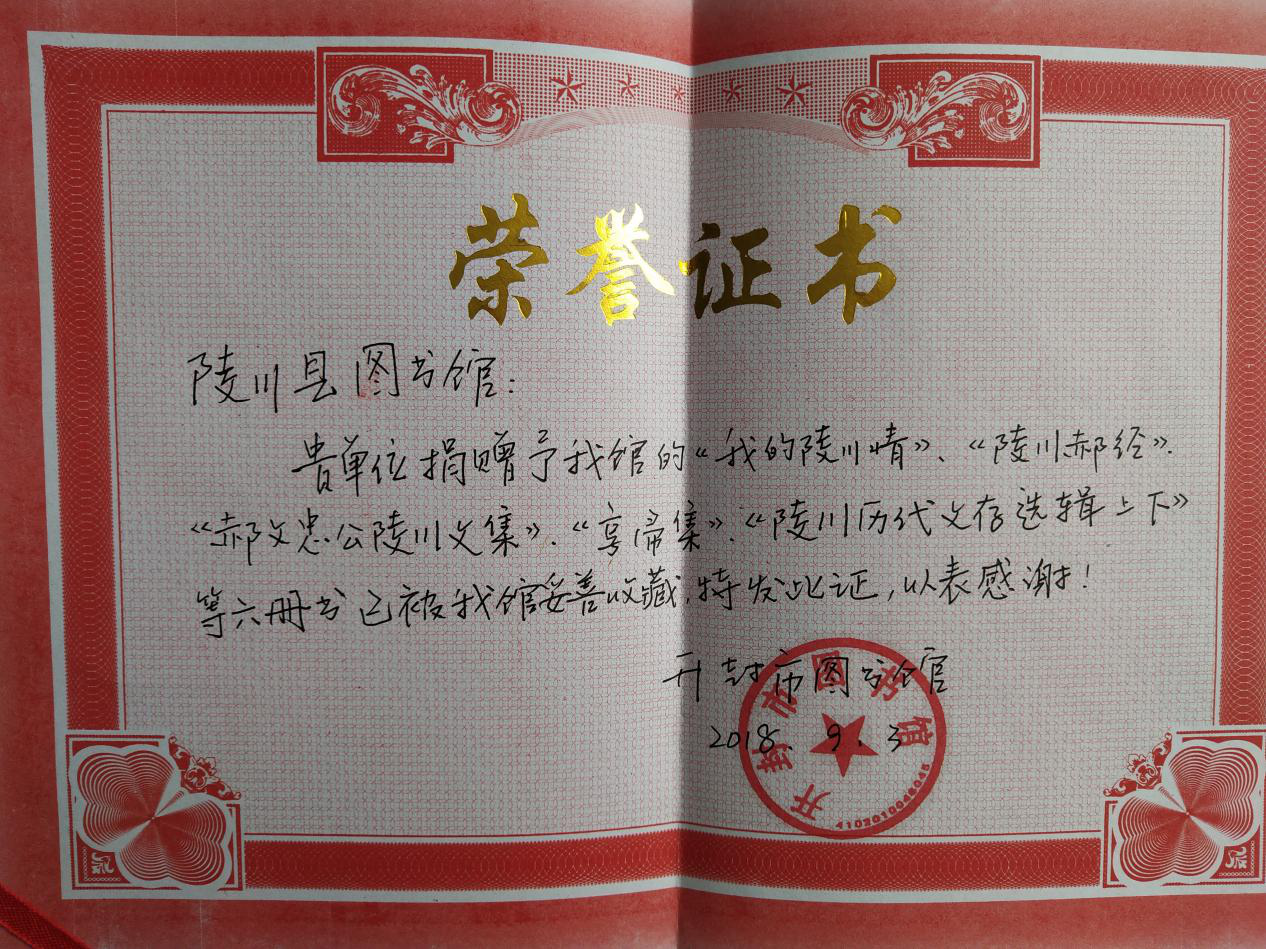 荣誉证书
陵川县图书馆：
贵单位捐赠予我馆的《我的陵川情》、《陵川郝经》、
《郝文忠公陵川文集》、《享帚集》、《陵川历代文存选辑上下》
等六册书已被我馆妥善收藏，特发此证，以表感谢！
开封市图书馆
2018.9.3
开封市图书馆
4102010046045